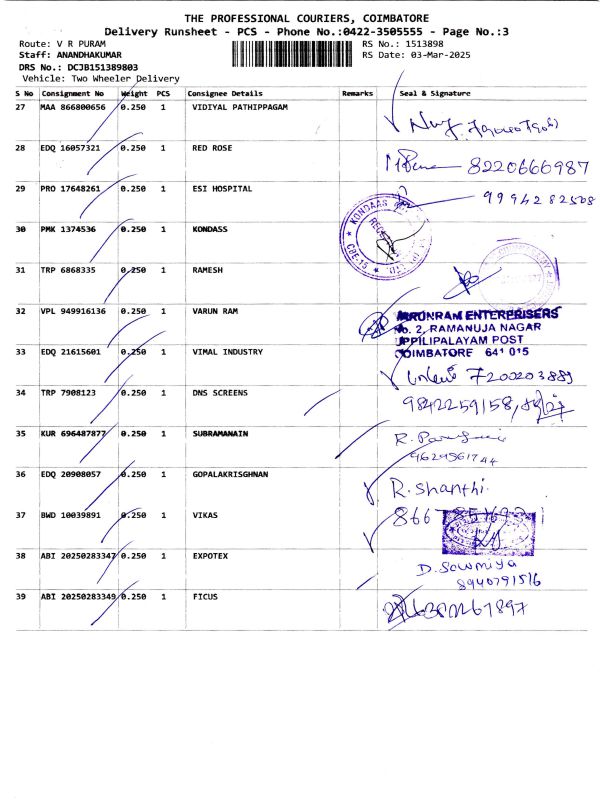 THE PROFESSIONAL COURIERS, COIMBATORE
Delivery Runsheet - PCS - Phone No.:0422-3505555 - Page No.:3
Route: V R PURAM RS No.: 1513898
Staff: ANANDHAKUMAR RS Date: 03-Mar-2025
DRS No.: DCJB151389803
Vehicle: Two Wheeler Delivery
S No Consignment No Weight PCS Consignee Details Remarks Seal & Signature
27 MAA 866800656 0.250 1 VIDIYAL PATHIPPAGAM
28 EDQ 16057321 0.250 1 RED ROSE 8220666987
29 PRO 17648261 0.250 1 ESI HOSPITAL 9994282508
30 PMK 1374536 0.250 1 KONDASS
KONDAAS
CBE-15
31 TRP 6868335 0.250 1 RAMESH
32 VPL 949916136 0.250 1 VARUN RAM
VARUNRAM ENTERPRISERS
No. 2, RAMANUJA NAGAR
UPPILIPALAYAM POST
COIMBATORE 641 015
33 EDQ 21615601 0.250 1 VIMAL INDUSTRY 7200203889
34 TRP 7908123 0.250 1 DNS SCREENS 9842259158,
35 KUR 696487877 0.250 1 SUBRAMANAIN R.
36 EDQ 20908057 0.250 1 GOPALAKRISGHNAN R. Shanthi
37 BWD 10039891 0.250 1 VIKAS 866
38 ABI 20250283347 0.250 1 EXPOTEX D. Sowmiya
8940791516
39 ABI 20250283349 0.250 1 FICUS